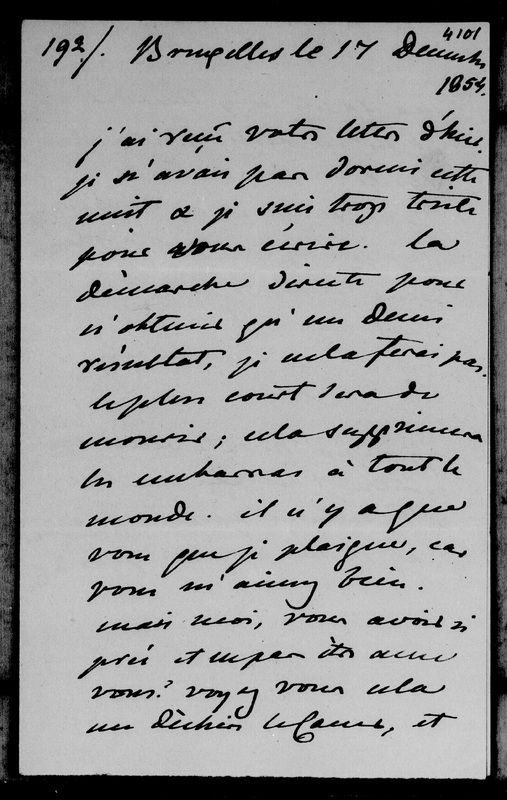 4101
192/. Bruxelles le 17 Decembre
1854.
j'ai reçu votre lettre d'hier.
je n'avais pas dormi cette
nuit & je suis trop triste
pour vous écrire. la
démarche directe pour
n'obtenir qu'un demi
résultat, je ne la ferai pas.
le plus court sera de
mourir; cela supprimera
les embarras à tout le
monde. il n'y a que
vous que je plaigne, car
vous m'aimez bien.
mais moi, vous avoir si
près et ne pas être avec
vous! voyez vous cela
me déchire le cœur, et